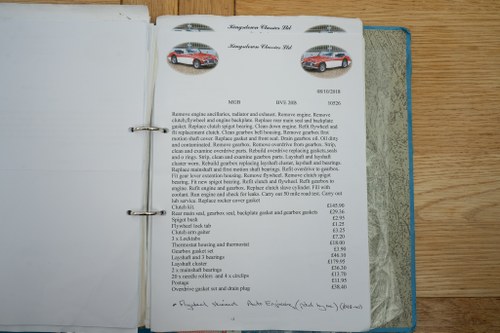 Kingsdown Classics Ltd
Kingsdown Classics Ltd
08/10/2018
10526
Remove engine ancillaries, radiator and exhaust. Remove engine. Remove
clutch,flywheel and engine backplate. Replace rear main seal and backplate
gasket. Replace clutch spigot bearing. Clean down engine. Refit flywheel and
fit replacement clutch. Clean gearbox bell housing. Remove gearbox first
motion shaft cover. Replace gasket and front seal. Drain gearbox oil. Oil dirty
and contaminated. Remove gearbox. Remove overdrive from gearbox. Strip,
clean and examine overdrive parts. Rebuild overdrive replacing gaskets,seals
and o rings. Strip, clean and examine gearbox parts. Layshaft and layshaft
cluster worn. Rebuild gearbox replacing layshaft cluster, layshaft and bearings.
Replace mainshaft and first motion shaft bearings. Refit overdrive to gearbox.
Fit gear lever extension housing. Remove flywheel. Remove clutch spigot
bearing. Fit new spigot bearing. Refit clutch and flywheel. Refit gearbox to
engine. Refit engine and gearbox. Replace clutch slave cylinder. Fill with
coolant. Run engine and check for leaks. Carry out 50 mile road test. Carry out
lub service. Replace rocker cover gasket
Clutch kit £145.00
Rear main seal, gearbox seal, backplate gasket and gearbox gaskets £29.36
Spigot bush £2.95
Flywheel lock tab £1.25
Clutch arm gaiter £3.25
3 x Locktabs £7.20
Thermostat housing and thermostat £18.90
Gearbox gasket set £3.90
Layshaft and 3 bearings £46.30
Layshaft cluster £179.95
2 x mainshaft bearings £36.30
26 x needle rollers and 6 x circlips £13.70
Postage £11.95
Overdrive gasket set and drain plug £38.40
+ Flywheel